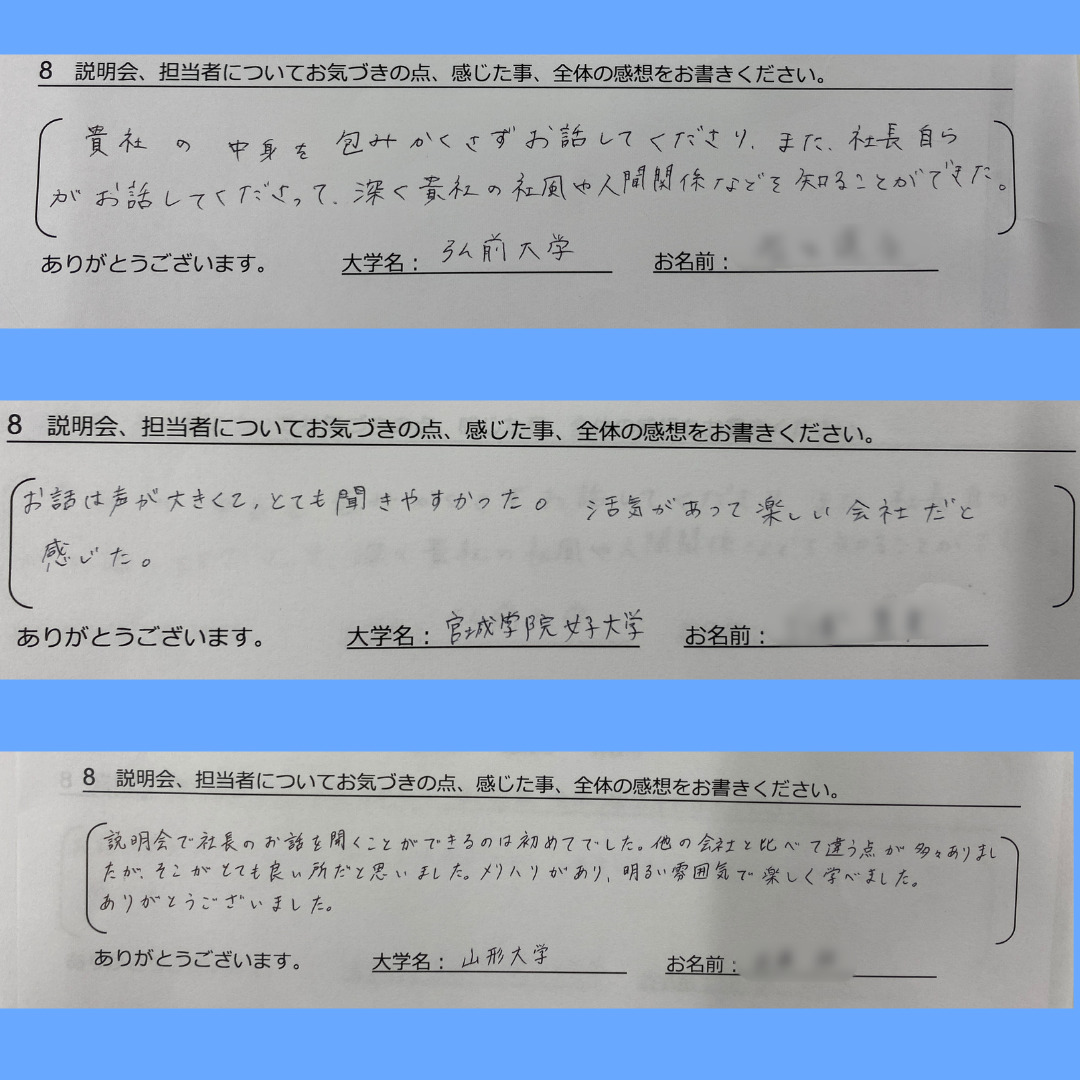 8 説明会、担当者についてお気づきの点、感じた事、全体の感想をお書きください。
貴社の中身を包みかくさずお話してくださり、また、社長自ら
がお話してくださって、深く貴社の社風や人間関係などを知ることができた。
ありがとうございます。 大学名： 弘前大学 お名前：
8 説明会、担当者についてお気づきの点、感じた事、全体の感想をお書きください。
お話は声が大きくて、とても聞きやすかった。 活気があって楽しい会社だと
感じた。
ありがとうございます。 大学名： 宮城学院女子大学 お名前：
8 説明会、担当者についてお気づきの点、感じた事、全体の感想をお書きください。
説明会で社長のお話を聞くことができるのは初めてでした。他の会社と比べて違う点が多々ありまし
たが、そこがとても良い所だと思いました。メリハリがあり、明るい雰囲気で楽しく学べました。
ありがとうございました。
ありがとうございます。 大学名： 山形大学 お名前：